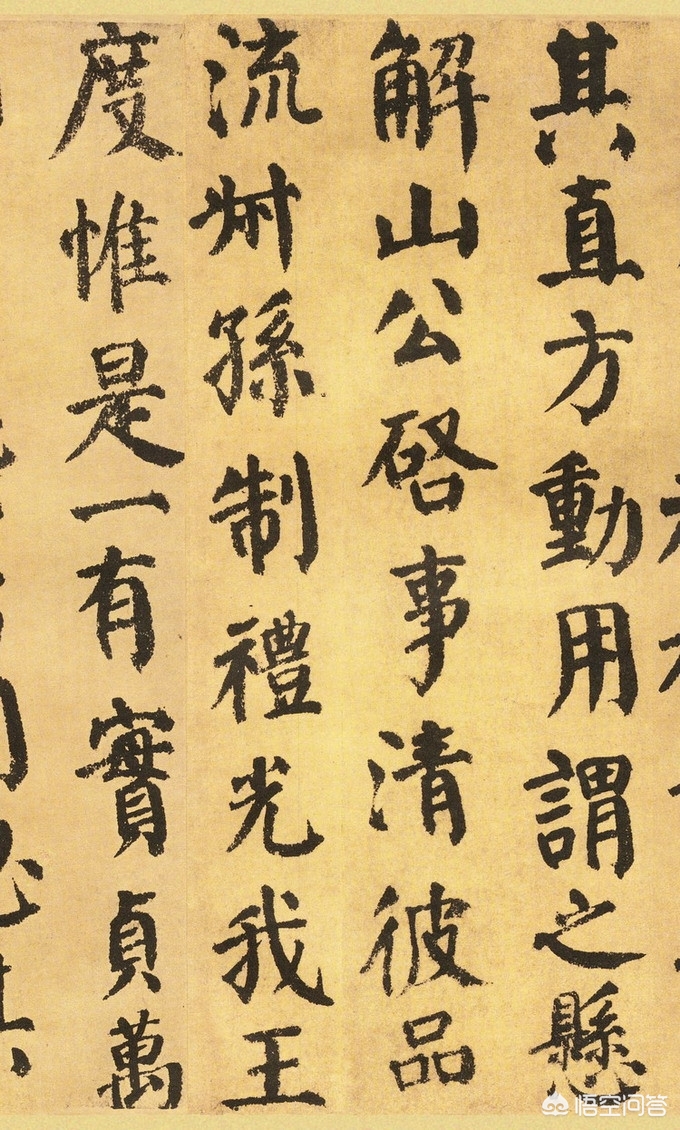 其直方動用謂之懸
解山公啓事清彼品
流叔孫制禮光我王
度惟是一有實貞萬
悟空问答